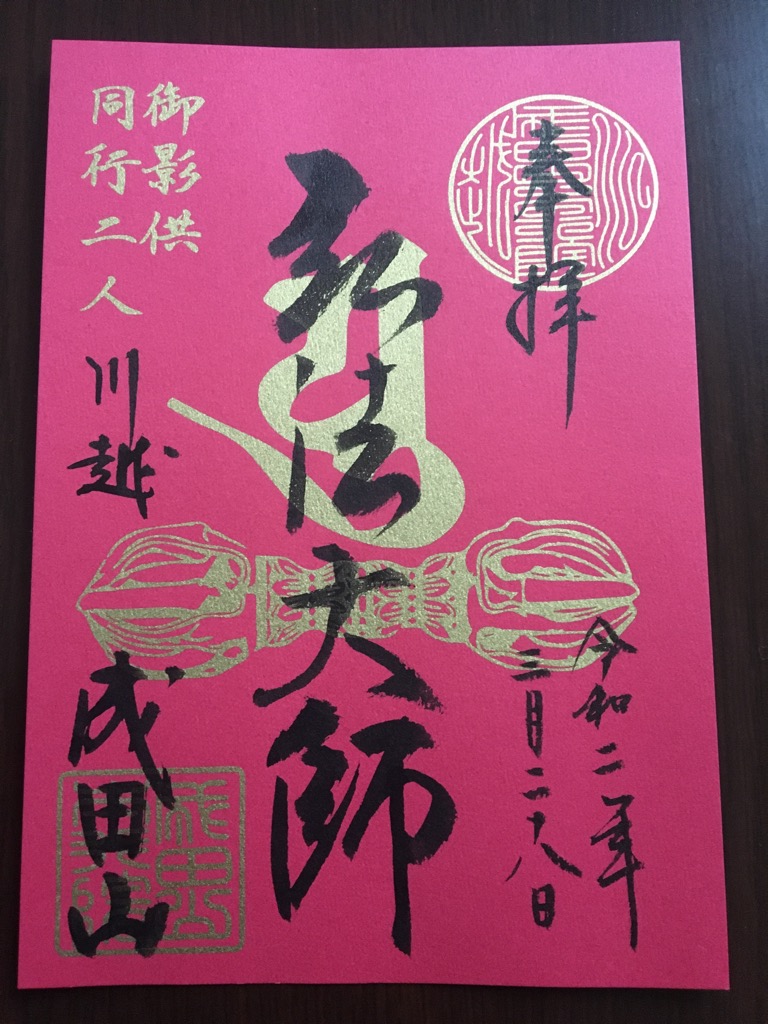 奉拝
令和二年
三月二十八日
弘法大師
御影供
同行二人
川越
成田山